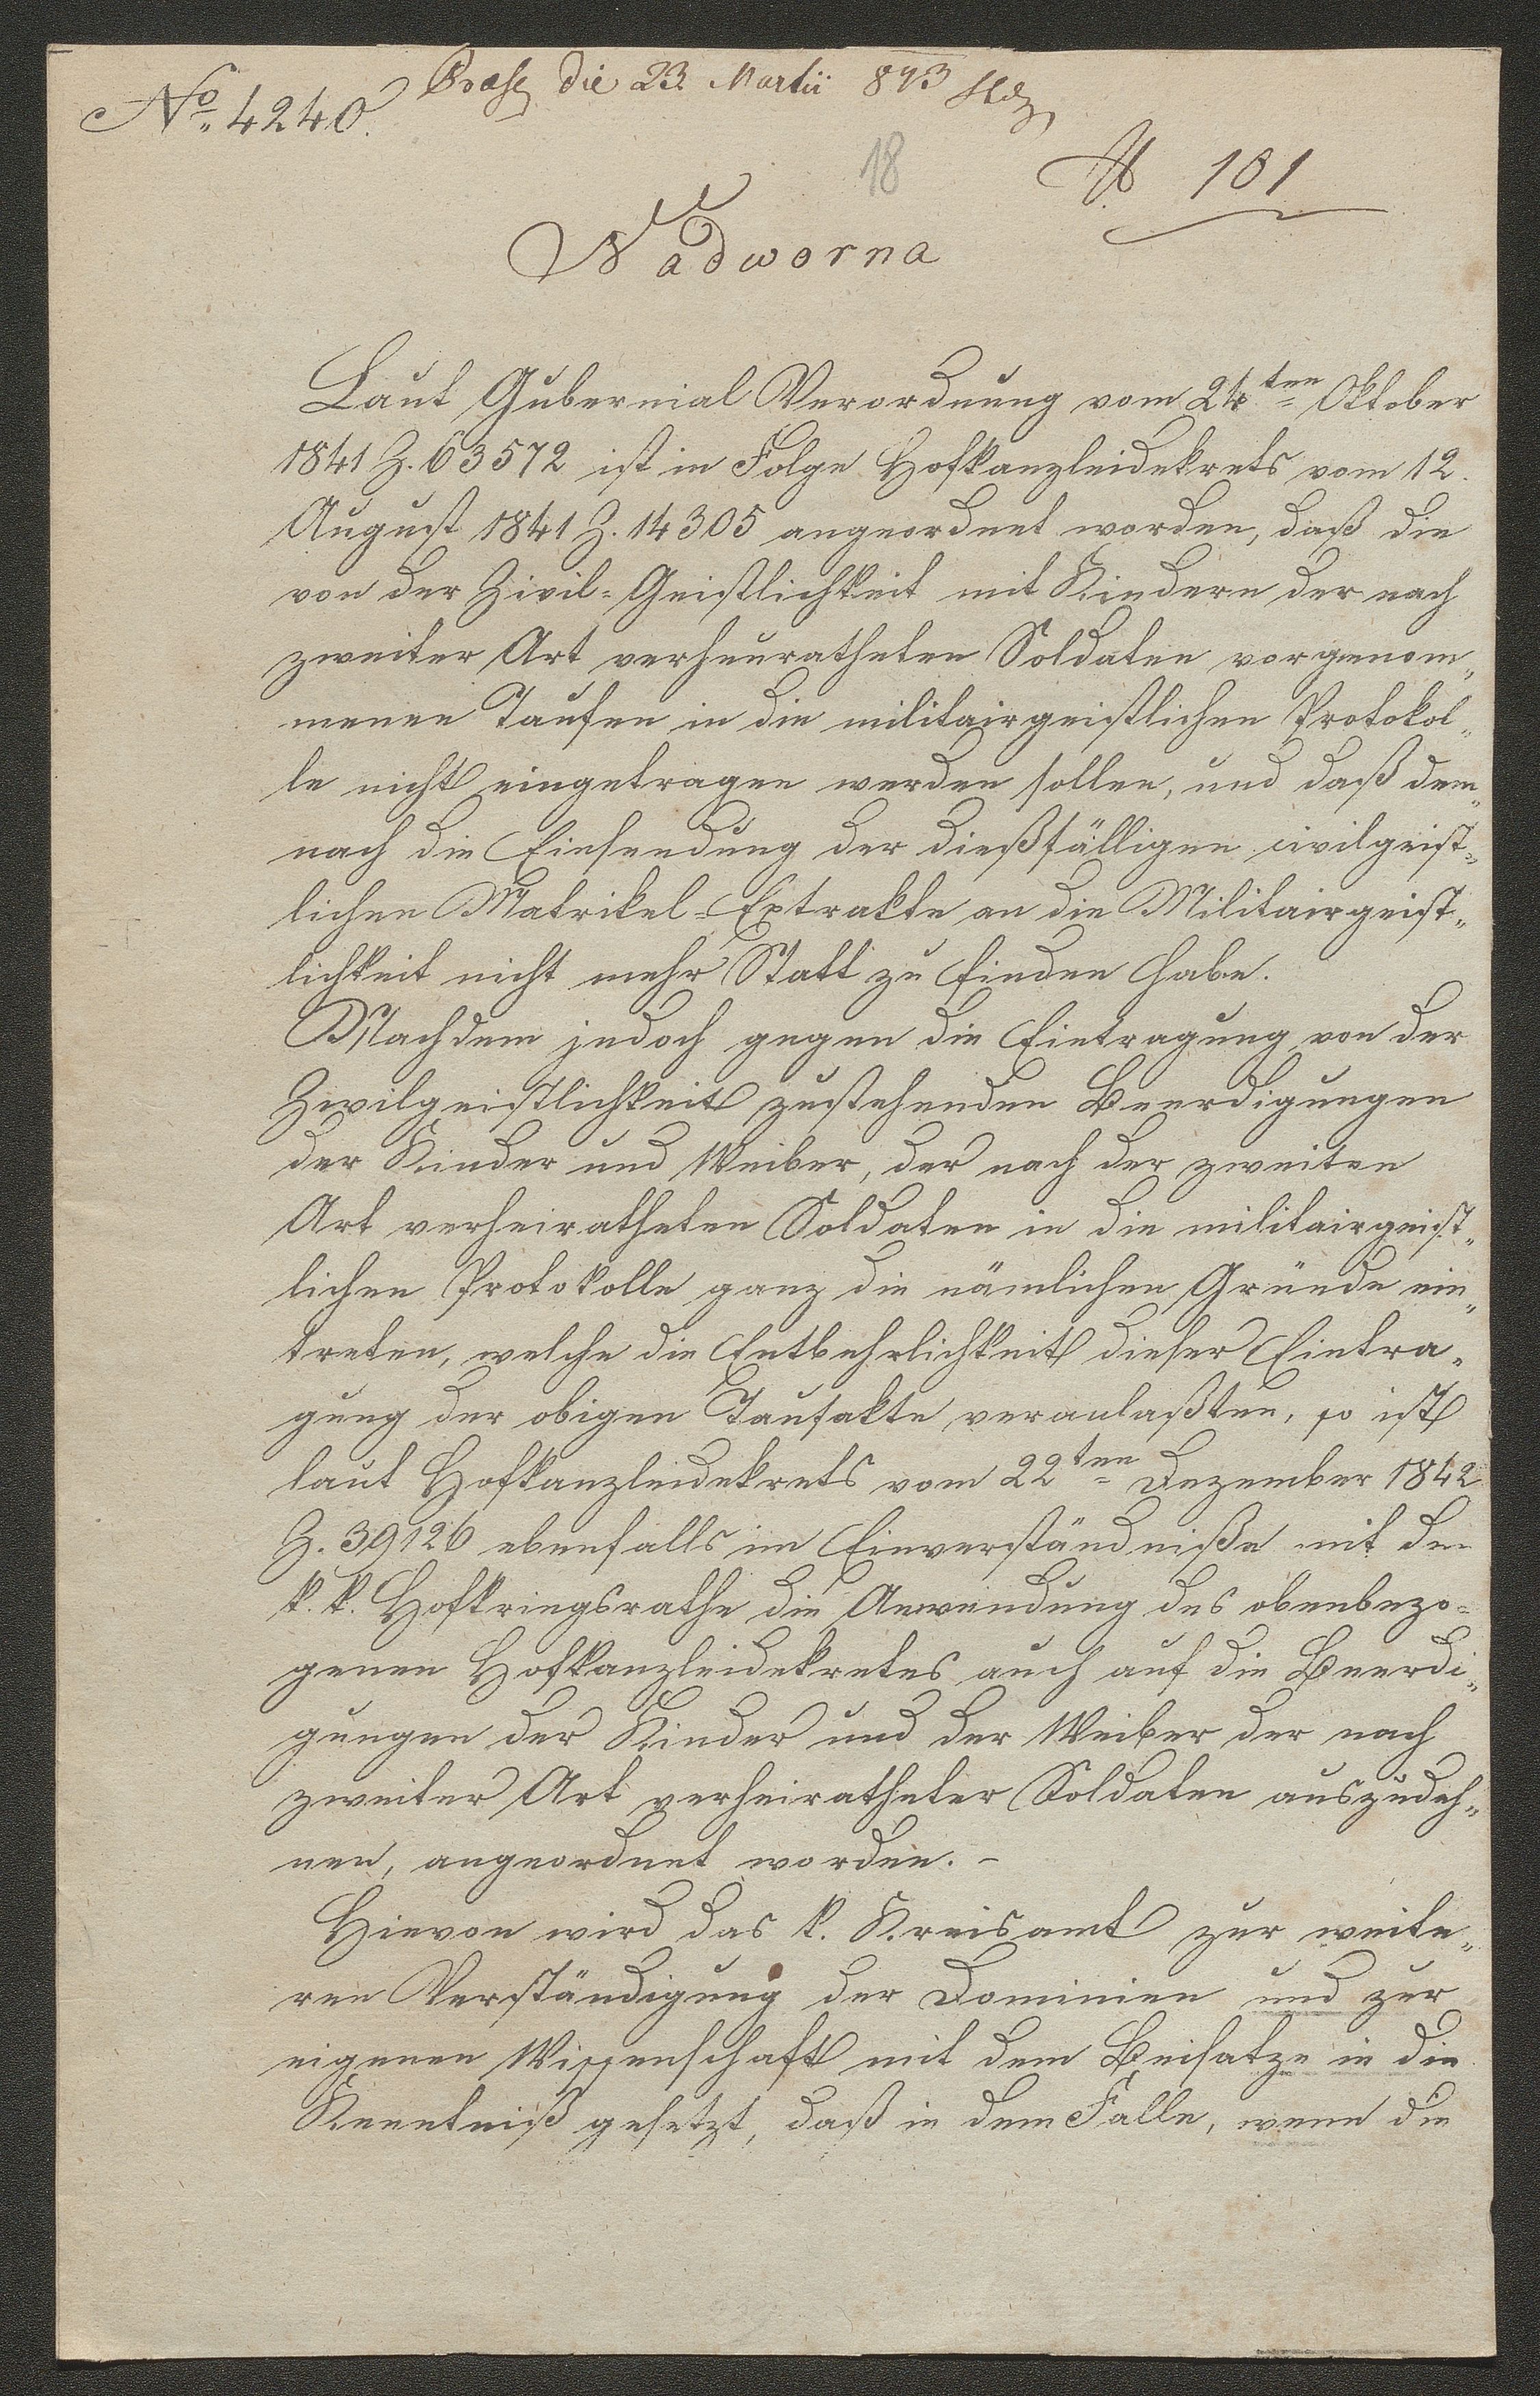 No. 4240.
Praes. die 23. Martii 843
18
N 101
Nadworna
Laut Gubernial Verordnung vom 24ten Oktober
1841 Z. 63572 ist in Folge Hofkanzleidekrets vom 12.
August 1841 Z. 14305 angeordnet worden, daß die
von der Zivil-Geistlichkeit mit Kindern der nach
zweiter Art verheuratheten Soldaten vorgenom„
menen Taufen in die militairgeistlichen Protokol„
le nicht eingetragen werden sollen, und daß dem„
nach die Einsendung der dießfälligen civilgeist„
lichen Matrikel-Extrakte an die Militairgeist„
lichkeit nicht mehr Statt zu finden habe.
Nachdem jedoch gegen die Eintragung von der
Zivilgeistlichkeit zustehenden Beerdigungen
der Kinder und Weiber, der nach der zweiten
Art verheiratheten Soldaten in die militairgeist„
lichen Protokolle ganz die nämlichen Gründe ein„
treten, welche die Entbehrlichkeit dieser Eintra„
gung der obigen Taufakte veranlaßten, so ist
laut Hofkanzleidekrets vom 22ten Dezember 1842
Z. 39126 ebenfalls im Einverständniße mit dem
k. k. Hofkriegsrathe die Anwendung des obenbezo-
genen Hofkanzleidekretes auch auf die Beerdi„
gungen der Kinder und der Weiber der nach
zweiter Art verheiratheter Soldaten auszudeh„
nen, angeordnet worden. –
Hievon wird das k. Kreisamt zur weite„
ren Verständigung der Dominien und zur
eigenen Wissenschaft mit dem Beisatze in die
Kenntniß gesetzt, daß in dem Falle, wenn die